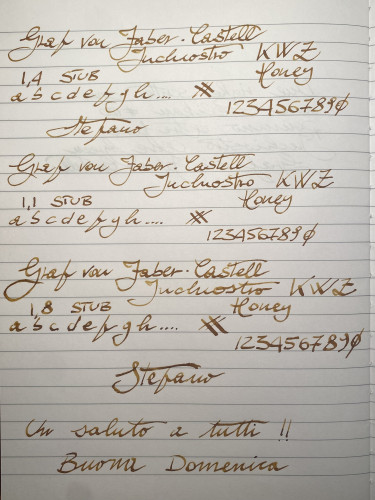 Graf von Faber-Castell
Inchiostro KWZ
1,4 STUB Honey
a b c d e f g h....
1234567890
Stefano
Graf von Faber-Castell
Inchiostro KWZ
1,1 STUB Honey
a b c d e f g h....
1234567890
Graf von Faber-Castell
Inchiostro KWZ
1,8 STUB Honey
a b c d e f g h....
1234567890
Stefano
Un saluto a tutti !!
Buona Domenica